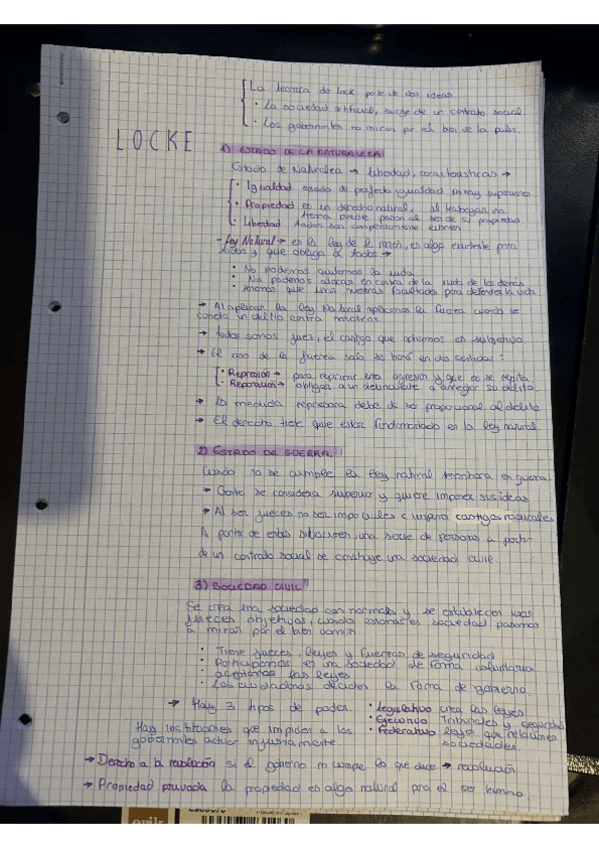 La teoría de Lock parte de dos ideas
· La sociedad artificial, surge de un contrato social
· Los gobernantes no miran por el bien de la
LOCKE
1) ESTADO DE LA NATURALEZA
Estado de Naturaleza → libertad, características →
· Igualdad estado de perfecta igualdad, no hay superiores
· Propiedad es un derecho natural, al trabajar una
tierra puede pasar al ser de su propiedad
· Libertad todos son completamente libres.
- Ley Natural → es la ley de la razón, es algo existente para
todos y que obliga a todos →
· No podemos quitarnos la vida
· No podemos atacar en contra de la vida de los demás
que usar nuestras facultades para defender la vida
→ Al aplicar la ley Natural aplicamos la fuerza cuando se
un delito contra nosotros
→ todos somos juez, el castigo que es subjetivo
→ El uso de la fuerza solo se hará en dos sentidos:
· Represión → para reprimir una agresión y que no se repita
· Reparación → obligan a un delincuente a arreglar su delito
→ La medida represora debe de ser proporcional al delito
→ El derecho tiene que estar fundamentado en la ley natural
2) ESTADO DE GUERRA.
Cuando no se cumple la ley natural en guerra
→ Gente se considera superior y quiere imponer sus ideas
→ Al ser jueces no ser imparciales e castigos radicales
A partir de estas situaciones, una serie de personas a partir
de un contrato social se construye una sociedad civil.
3) SOCIEDAD CIVIL
Se crea una sociedad con normas y se establecen unos
jueces objetivos, cuando sociedad pasamos
a mirar por el bien común.
· Tiene jueces, leyes y fuerzas de seguridad
· Participamos en una sociedad de forma voluntaria
aceptamos las leyes
· Los ciudadanos deciden la forma de gobierno
→ Hay 3 tipos de poder. · Legislativo crea las leyes
· Ejecutivo Tribunales y seguridad
· Federativo leyes que relacionen
sociedades.
Hay instituciones que impiden a los
gobernantes actuar injustamente
→ Derecho a la revolución si el gobierno no cumple lo que dice → revolución
→ Propiedad privada la propiedad es algo natural para el ser humano.